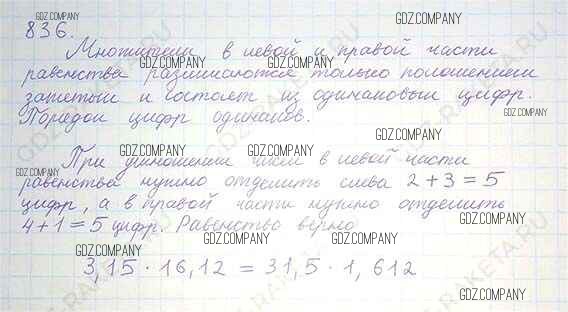 836.
Множители в левой и правой части
равенства различаются только положением
запятых и состоят из одинаковых цифр.
Порядок цифр одинаков.
При умножении чисел в левой части
равенства нужно отделить слева 2+3=5
цифр, а в правой части нужно отделить
4+1=5 цифр. Равенство верно
3,15 · 16,12 = 31,5 · 1,612
GDZ.COMPANY
GDZ.COMPANY
GDZ.COMPANY
GDZ.COMPANY
GDZ.COMPANY
GDZ.COMPANY
GDZ.COMPANY
GDZ.COMPANY
GDZ.COMPANY
GDZ.COMPANY
GDZ.COMPANY
GDZ.COMPANY
GDZ.COMPANY
GDZ.COMPANY